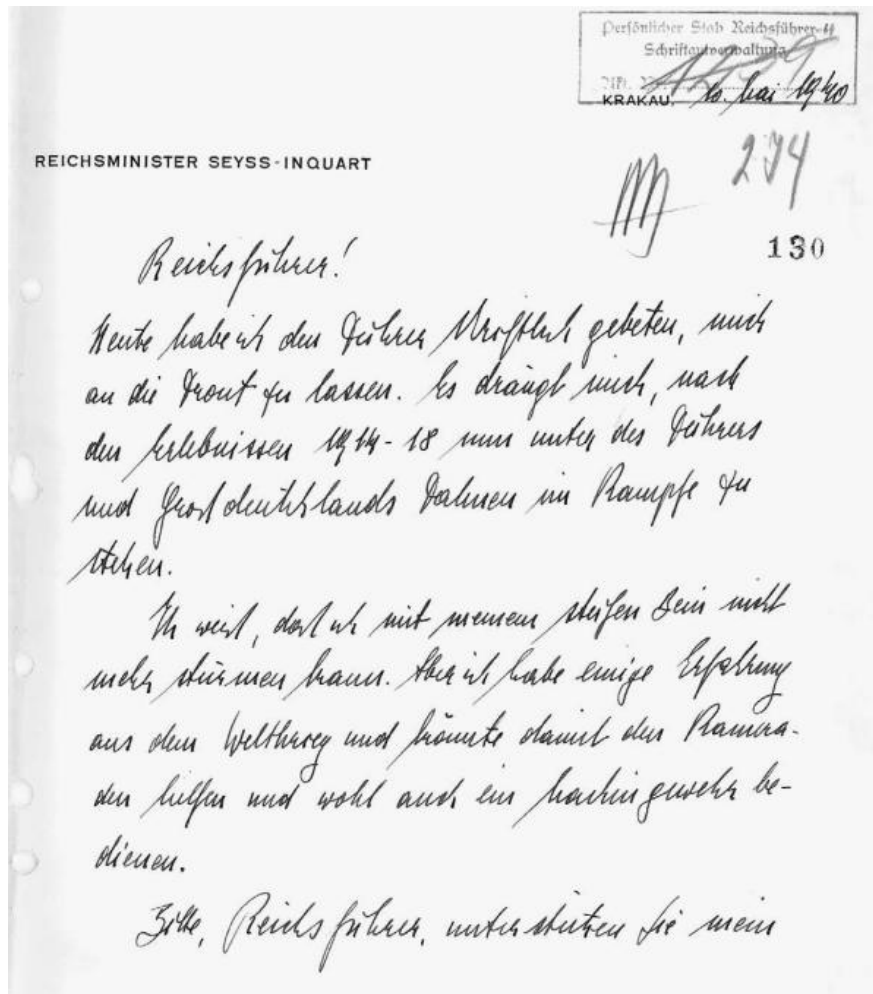 Persönlicher Stab Reichsführer-SS
Schriftgutverwaltung
Akt. Nr.
KRAKAU, 10. Mai 1940
REICHSMINISTER SEYSS-INQUART
274
130
Reichsführer!
Heute habe ich den Führer schriftlich gebeten, mich
an die Front zu lassen. Es drängt mich, nach
den Erlebnissen 1914-18 nun unter des Führers
und Grossdeutschlands Fahnen im Kampfe zu
stehen.
Ich weiss, dass ich mit meinem steifen Bein nicht
mehr stürmen kann. Aber ich habe einige Erfahrung
aus dem Weltkrieg und könnte damit den Kamera-
den helfen und wohl auch ein Maschingewehr be-
dienen.
Bitte, Reichsführer, unterstützen Sie mein